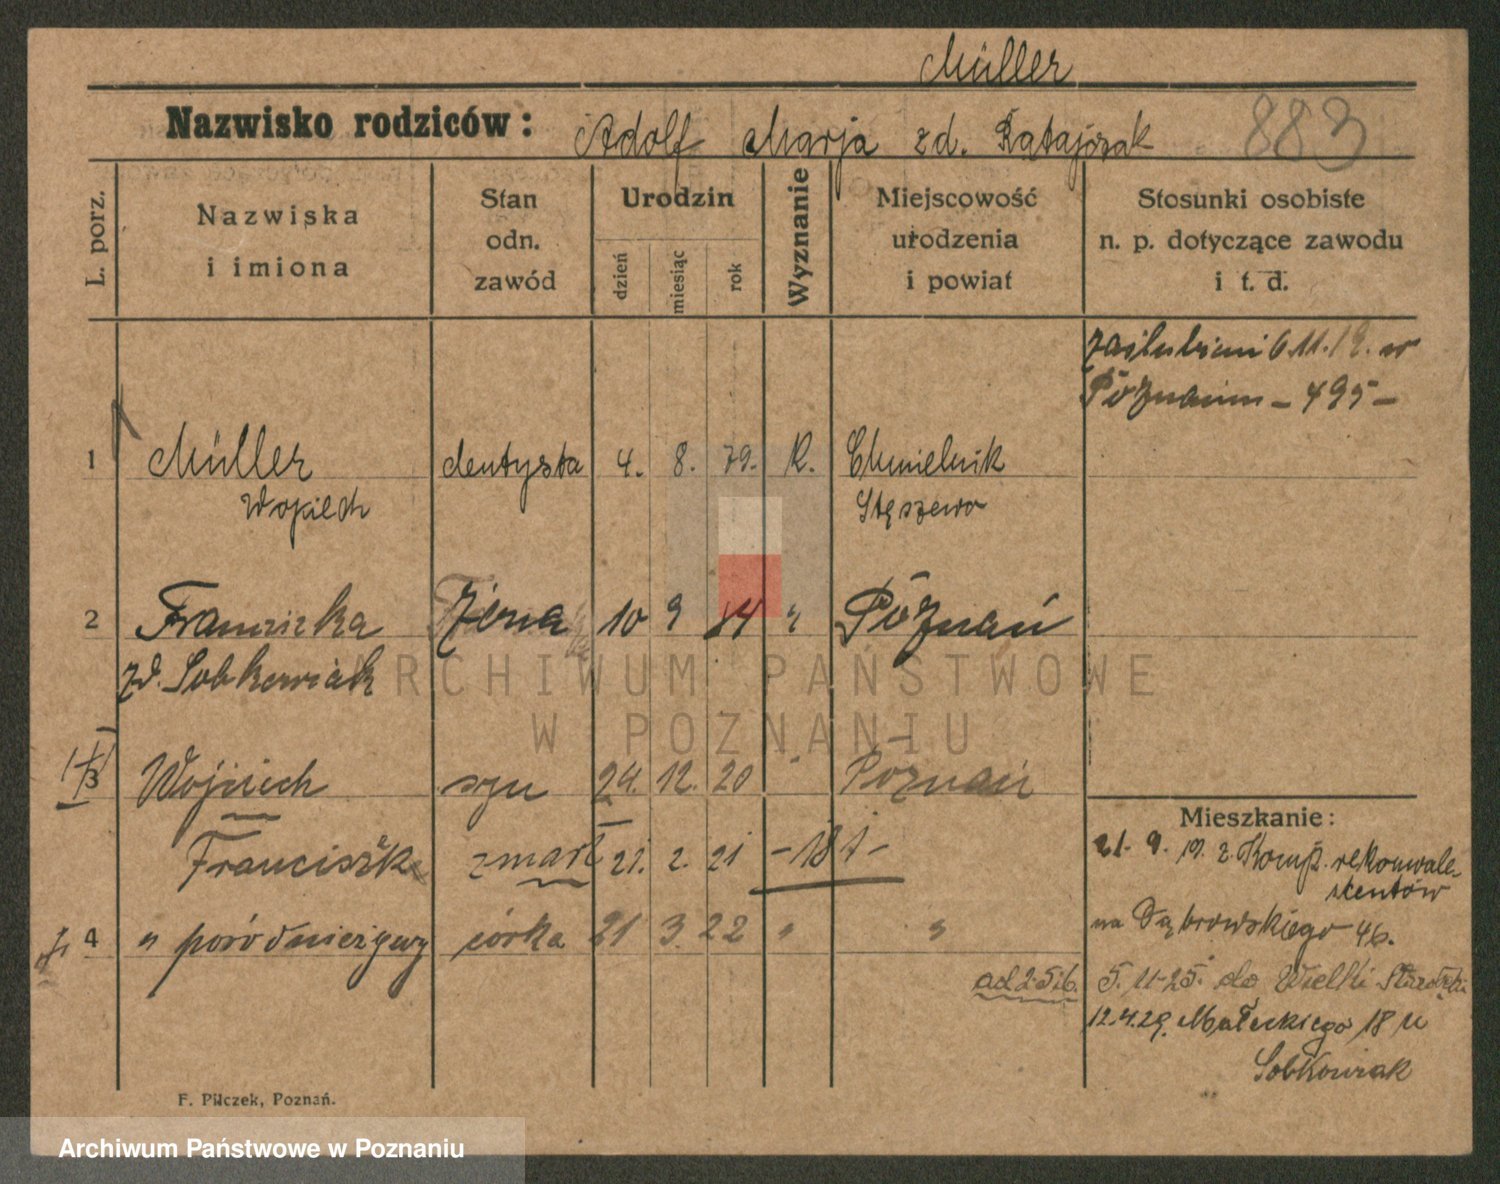 Müller
Nazwisko rodziców: Adolf Marja zd. Ratajczak 883
L. porz.
Nazwiska
i imiona
Stan
odn.
zawód
Urodzin
dzień
miesiąc
rok
Wyznanie
Miejscowość
urodzenia
i powiat
Stosunki osobiste
n. p. dotyczące zawodu
i t. d.
zaślubieni 6.11.19. w
Poznaniu - 495 -
1 Müller dentysta 4. 8. 79. R. Chmielnik
Wojciech Stęszewo
2 Franciszka żona 10 9 84 " Poznań
zd. Sobkowiak
3 Wojciech syn 24. 12. 20 " Poznań
Franciszek zmarł 21. 2. 21 - 181 -
4 " poród nieżywy córka 21 3. 22 " "
Mieszkanie:
21. 9. 19. 2. Komp. rekonwale-
scentów
na Dąbrowskiego 46.
ad 2-5 i 6. 5. 11-25. do Wielki
12.4.29. Małeckiego 18 u
Sobkowiak
F. Pilczek, Poznań.
ARCHIWUM PAŃSTWOWE
W POZNANIU
Archiwum Państwowe w Poznaniu